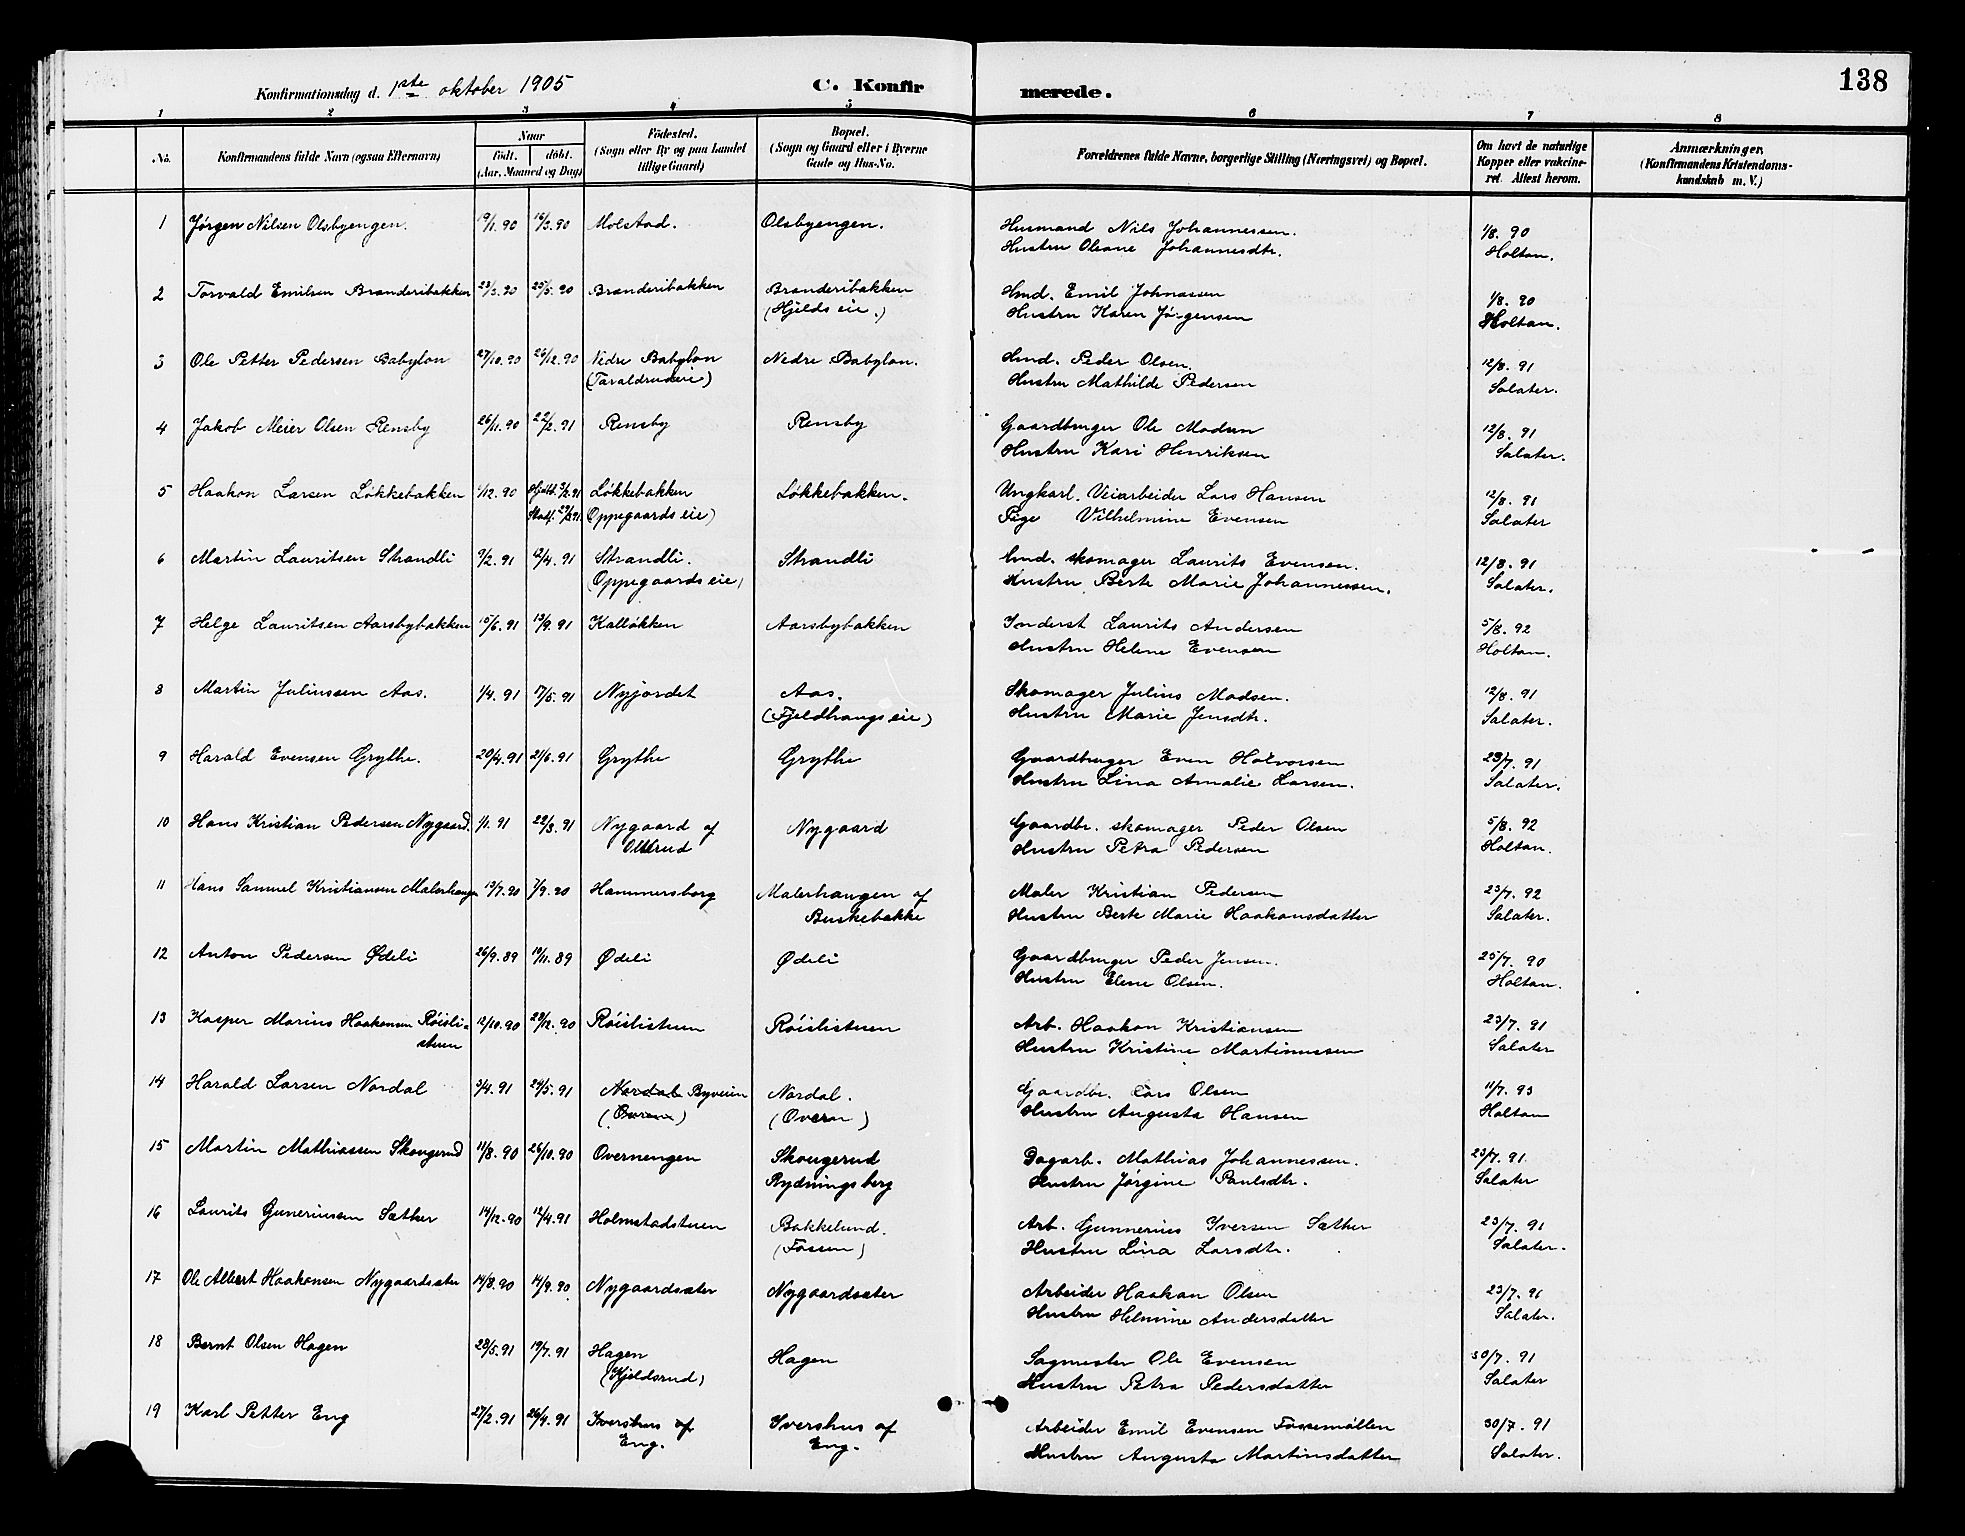 138
Konfirmationsdag d. 1ste oktober 1905 C. Konfirmerede.
1 2 3 4 5 6 7 8
No. Konfirmandens fulde Navn (ogsaa Efternavn) Naar födt. döbt. (Aar, Maaned og Dag) Födested. (Sogn eller By og paa Landet tillige Gaard) Bopæl. (Sogn og Gaard eller i Byerne Gade og Hus-No. Forældrenes fulde Navne, borgerlige Stilling (Næringsvei) og Bopæl. Om havt de naturlige Kopper eller vakcineret. Attest herom. Anmærkninger, (Konfirmandens Kristendomskundskab m. V.)
1 Jørgen Nilsen Olsbyengen. 19/1.90 16/3.90 Molstad. Olsbyengen. Husmand Nils Johannessen. 1/8. 90
Hustru Oleane Johannesdtr. Holtan.
2 Torvald Emilsen Branderibakken 23/3.90 25/5.90 Branderibakken Branderibakken Hmd. Emil Johnassen 1/8. 90
(Hjelds eie.) Hustru Karen Jørgensen Holtan.
3 Ole Petter Pedersen Babylon 27/10.90 26/12.90 Nedre Babylon Nedre Babylon. Hmd. Peder Olsen. 12/8. 91
(Taraldrudeie) Hustru Mathilde Pedersen Salater.
4 Jakob Meier Olsen Rensby 26/11.90 22/2.91 Rensby Rensby Gaardbruger Ole Madsen 12/8. 91
Hustru Kari Henriksen Salater.
5 Haakon Larsen Løkkebakken 1/12.90 Hjdbt. 3/2.91 Løkkebakken Løkkebakken. Ungkarl. Veiarbeider Lars Hansen 12/8. 91
Stadf. 29/3.91 Oppegaards eie) Pige Vilhelmine Evensen Salater
6 Martin Lauritsen Strandli 9/2.91 12/4.91 Strandli. Strandli Hmd. skomager Laurits Evensen. 12/8. 91
(Oppegaards eie) Hustru Berte Marie Johannessen. Salater.
7 Helge Lauritsen Aarsbybakken 15/6.91 13/9.91 Kalløkken Aarsbybakken Inderst Laurits Andersen 5/8. 92
Hustru Helene Evensen Holtan.
8 Martin Juliussen Aas. 1/4.91 17/5.91 Nyjordet Aas. Skomager Julius Madsen. 12/8. 91
(Fjeldhaugs eie) Hustru Marie Jensdtr. Salater.
9 Harald Evensen Grythe. 20/4.91 21/6.91 Grythe Grythe Gaardbruger Even Halvorsen 23/7. 91
Hustru Lina Amalie Larsen. Salater.
10 Hans Kristian Pedersen Nygaard. 1/1.91 22/3.91 Nygaard af Nygaard Gaardbr. skomager Peder Olsen 5/8. 92
Ollerud Hustru Petra Pedersen Holtan.
11 Hans Samuel Kristiansen Malerhaugen 19/7.90 7/9.90 Hammersborg Malerhaugen af Maler Kristian Pedersen 23/7. 92
Buskebakke Hustru Berte Marie Haakonsdatter Salater.
12 Anton Pedersen Ødeli 26/9.89 10/11.89 Ødeli Ødeli Gaardbruger Peder Jensen. 25/7. 90
Hustru Elene Olsen. Holtan.
13 Kasper Marius Haakonsen Røisli- 12/10.90 28/12.90 Røislistuen Røislistuen Arb. Haakon Kristiansen 23/7. 91
stuen Hustru Kristine Martinussen Salater
14 Harald Larsen Nordal 3/4.91 24/5.91 Nordal Byveien Nordal. Gaardbr. Lars Olsen 11/7. 93
(Overn) (Overn) Hustru Augusta Hansen Holtan
15 Martin Mathiassen Skougerud 11/8.90 26/10.90 Overnengen Skougerud Dagarb. Mathias Johannessen. 23/7. 91.
Rydningsberg Hustru Jørgine Paulsdtr. Salater
16 Laurits Guneriussen Sæther 14/12.90 12/4.91 Holmstadstuen Bakkelund. Arb. Gunnerius Iversen Sæther 23/7. 91
(Fossen) Hustru Lina Larsdtr. Salater.
17 Ole Albert Haakonsen Nygaardsæter 14/8.90 14/9.90 Nygaardsæter Nygaardsæter Arbeider Haakon Olsen 23/7. 91
Hustru Helmine Andersdatter Salater.
18 Bernt Olsen Hagen 28/5.91 19/7.91 Hagen Hagen Sagmester Ole Evensen 30/7. 91
(Kjeldsrud) Hustru Petra Pedersdatter Salater
19 Karl Petter Eng 27/2.91 26/4.91 Ivershus af Ivershus af Arbeider Emil Evensen Fossemøllen 30/7. 91
Eng. Eng. Hustru Augusta Martinsdatter Salater.